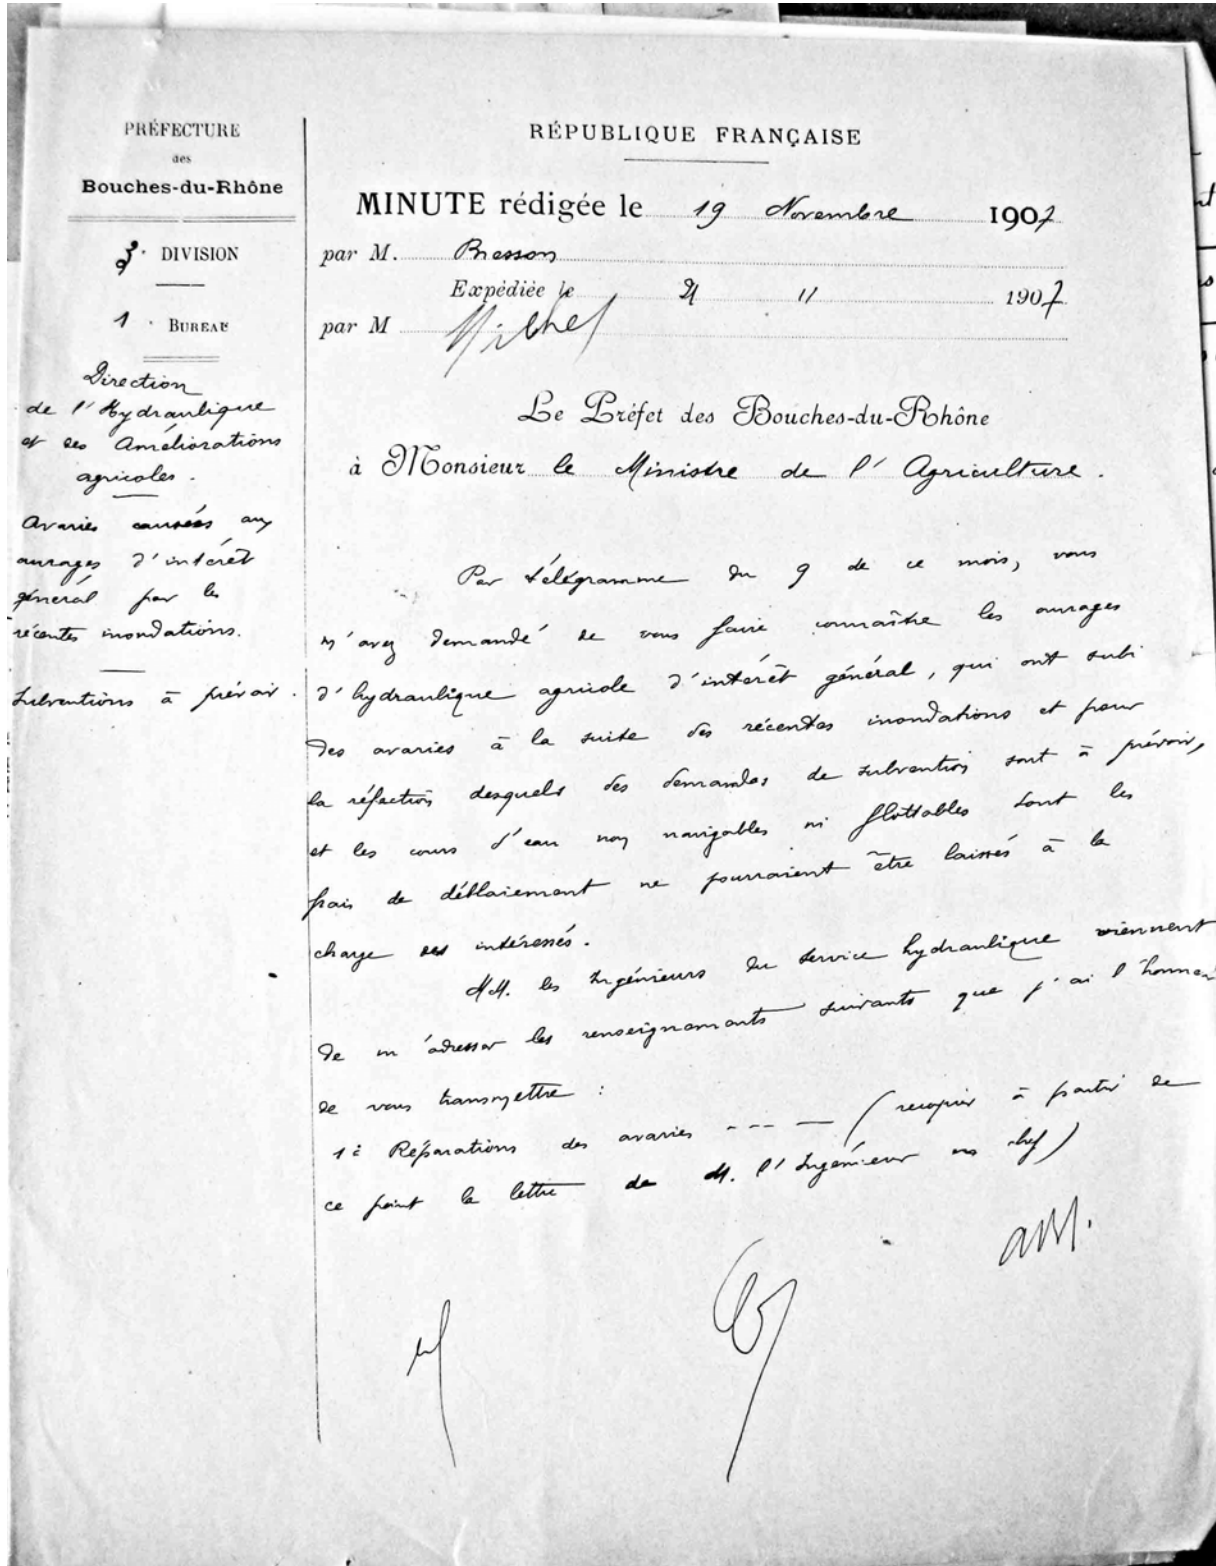 PRÉFECTURE
des
Bouches-du-Rhône
3e DIVISION
1 . BUREAU
Direction
de l'Hydraulique
et des Améliorations
agricoles.
Avaries causées aux
ouvrages d'intérêt
général par les
récentes inondations.
Subventions à prévoir.
RÉPUBLIQUE FRANÇAISE
MINUTE rédigée le 19 Novembre 1907
par M. Bresson
Expédiée le 21 11 1907
par M Michel
Le Préfet des Bouches-du-Rhône
à Monsieur le Ministre de l'Agriculture.
Par télégramme du 9 de ce mois, vous
m'avez demandé de vous faire connaître les ouvrages
d'hydraulique agricole d'intérêt général, qui ont subi
des avaries à la suite des récentes inondations et pour
la réfection desquels des demandes de subvention sont à prévoir,
et les cours d'eau non navigables ni flottables dont les
frais de déblaiement ne pourraient être laissés à la
charge des intéressés.
MM. les Ingénieurs du service hydraulique viennent
de m'adresser les renseignements suivants que j'ai l'honneur
de vous transmettre :
1º Réparations des avaries --- — (recopier à partir de
ce point la lettre de M. l'Ingénieur en chef)